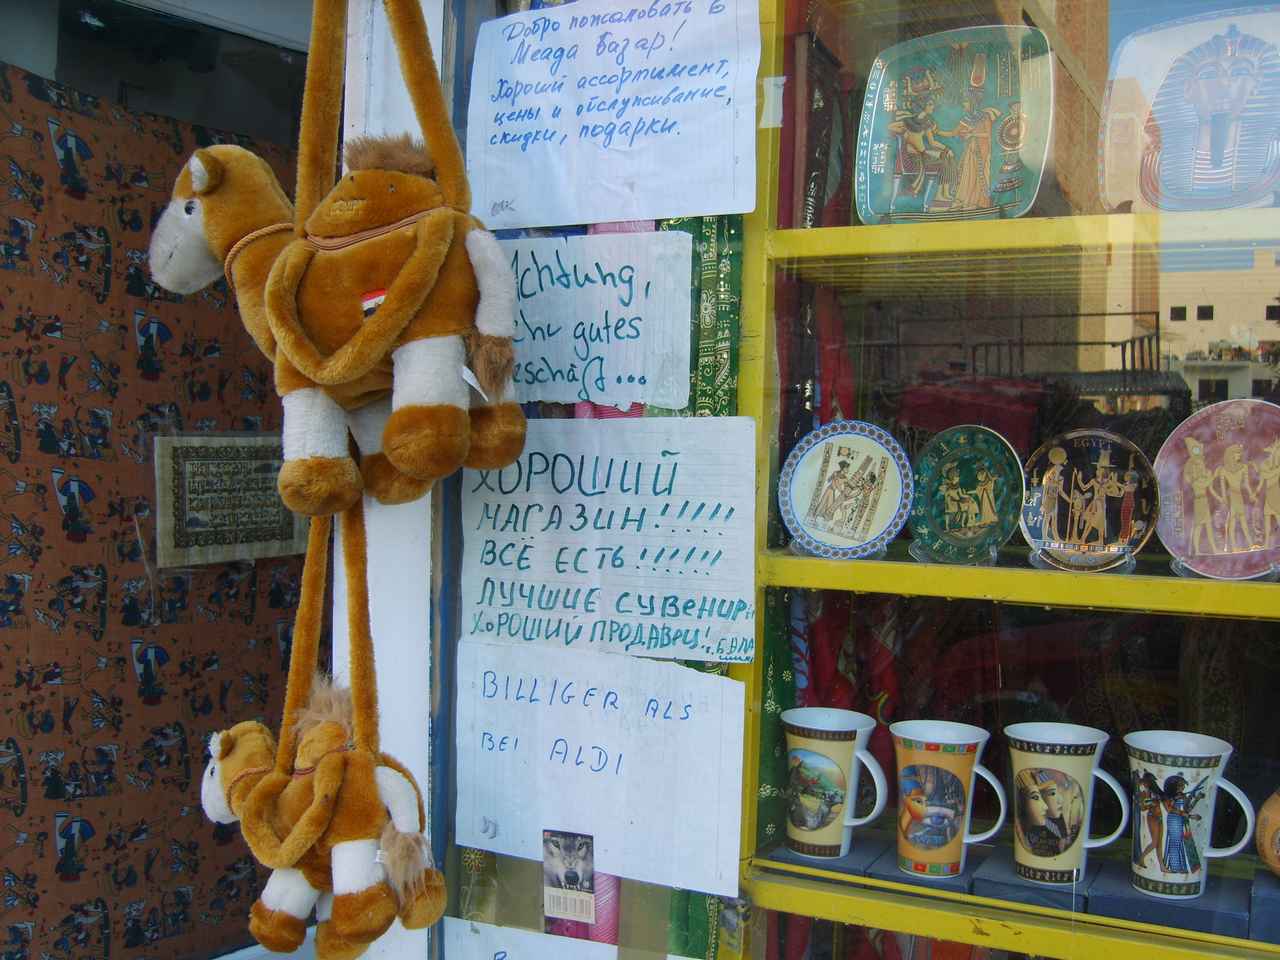 Добро пожаловать в
Меада Базар!
Хороший ассортимент,
цены и обслуживание,
скидки, подарки.
Achtung,
gutes
...
ХОРОШИЙ
МАГАЗИН!!!!!
ВСЁ ЕСТЬ!!!!!!
ЛУЧШИЕ СУВЕНИРЫ
ХОРОШИЙ ПРОДАВЕЦ!
BILLIGER ALS
BEI ALDI
EGYPT
EGYPT